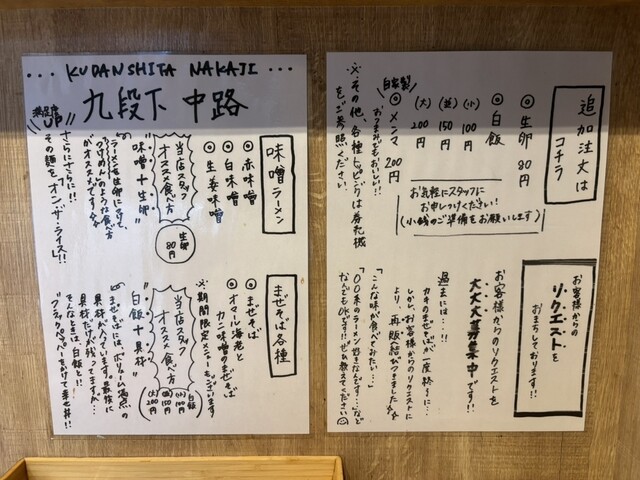 ... KUDANSHITA NAKAJI ...
九段下 中路
味噌ラーメン
◎赤味噌
◎白味噌
◎生姜味噌
当店スタッフ
オススメ食べ方
"味噌+生卵"
生卵
80円
ラーメンを生卵に浸して、
つけめんのような食べ方
がオススメです☆☆
さらにさらに!!
その麺を「オン・ザ・ライス」!!
満足度
UP
まぜそば各種
◎まぜそば
◎オマール海老と
カニ味噌のまぜそば
※期間限定メニューもございます
当店スタッフ
オススメ食べ方
"白飯+具材"
白飯
(小)100円
(並)150円
(大)200円
まぜそばには、ボリューム満点の
具材が入っています。最後に
具材だけが残ってますが…
そんなときは、白飯!!
ブラックペッパーをかけて幸せ丼!!
追加注文は
コチラ
◎生卵 80円
◎白飯
(小)100円
(並)150円
(大)200円
自家製
◎メンマ 200円
おつまみでもおいしい!!
※その他、各種トッピングは券売機
をご参照ください。
お気軽にスタッフに
お申しつけください!
(小銭のご準備をお願いします)
お客様からの
リクエストを
おまちしております!!
お客様からのリクエストを
大大大募集中です!!
過去には…!!
カキのまぜそばが一度終了に…
しかし、お客様からのリクエストに
より、再販結びつきました☆☆
「こんな味が食べてみたい…」
「〇〇系のラーメン好きなんす…」など
なんでもOKです!!ぜひ教えてください